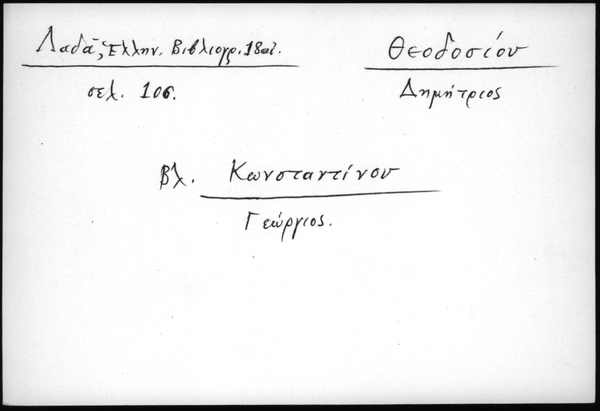 Λαδᾶ, Ἑλλην. Βιβλιογρ. 18 αἰ.
σελ. 106.
Θεοδοσίου
Δημήτριος
Βλ. Κωνσταντίνου
Γεώργιος.